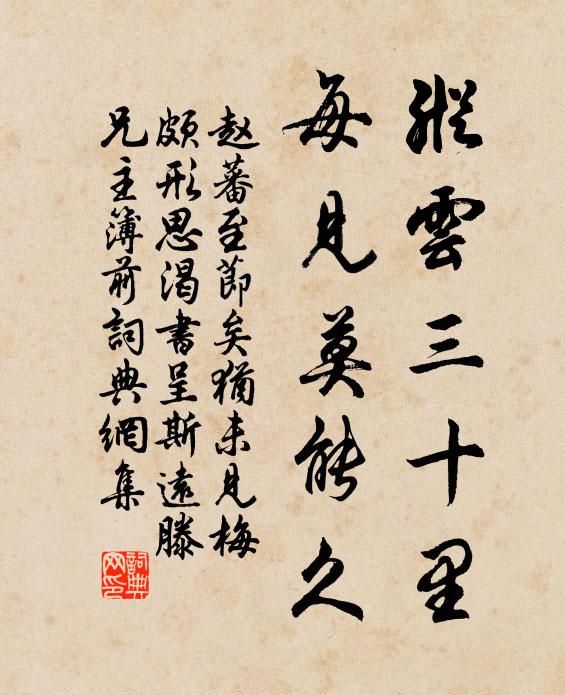 縱雲三十里
每見莫能久
赵蕃至節矣猶未見梅
頗形思渴書呈斯遠滕
兄主簿前詞典網集
詞典网印